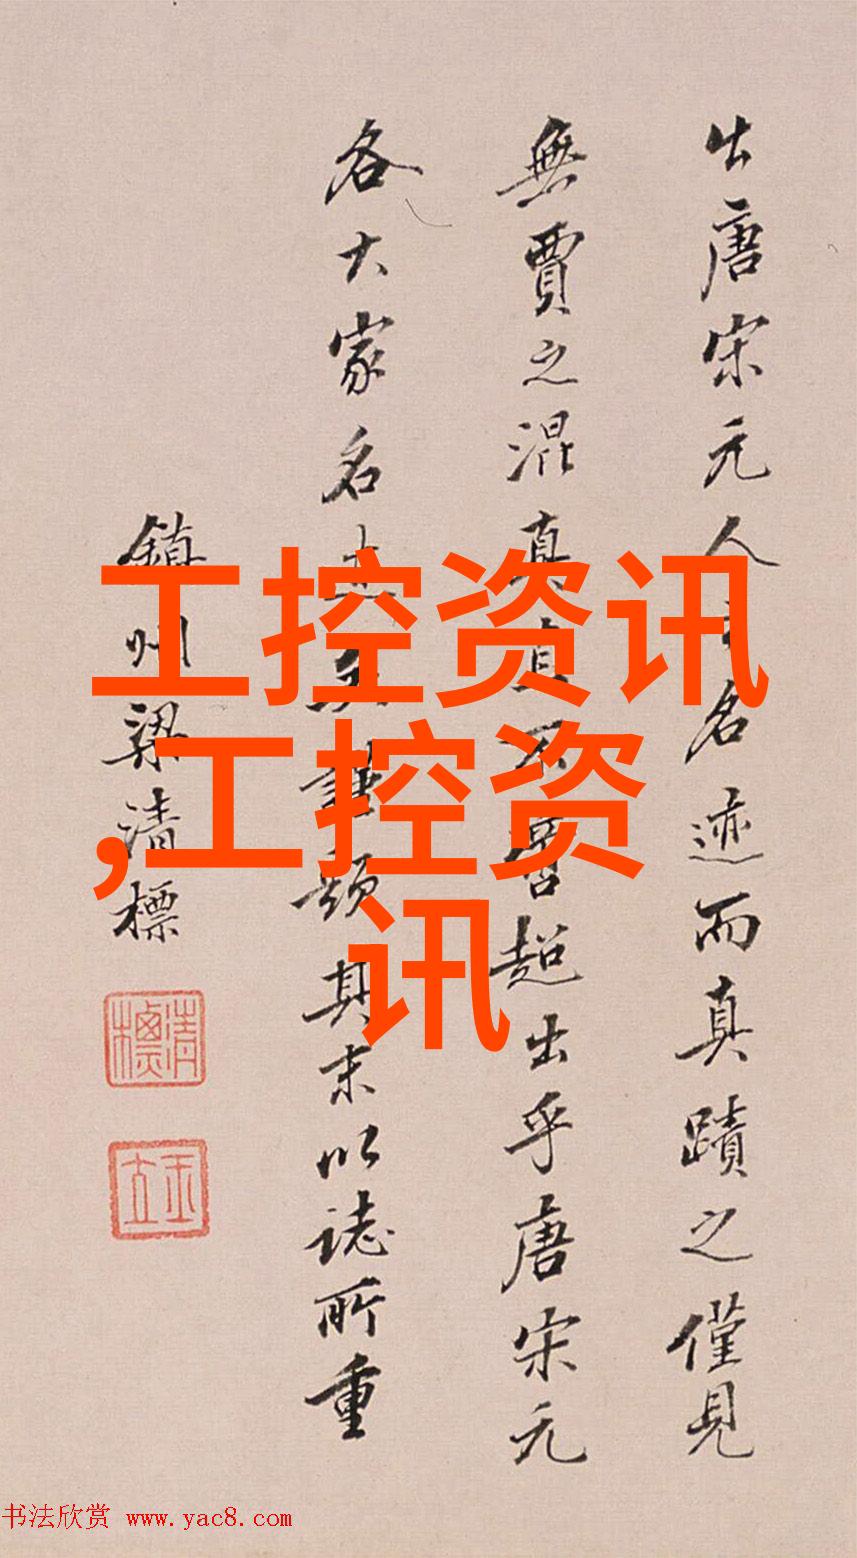 出唐宋元人名迹而真蹟之僅見
無賈之混真超出乎唐宋元
各大家名題其末以誌所重
鎮州梁清標
清標
玉立
工控资讯
,工控资
讯
书法欣赏 www.yac8.com